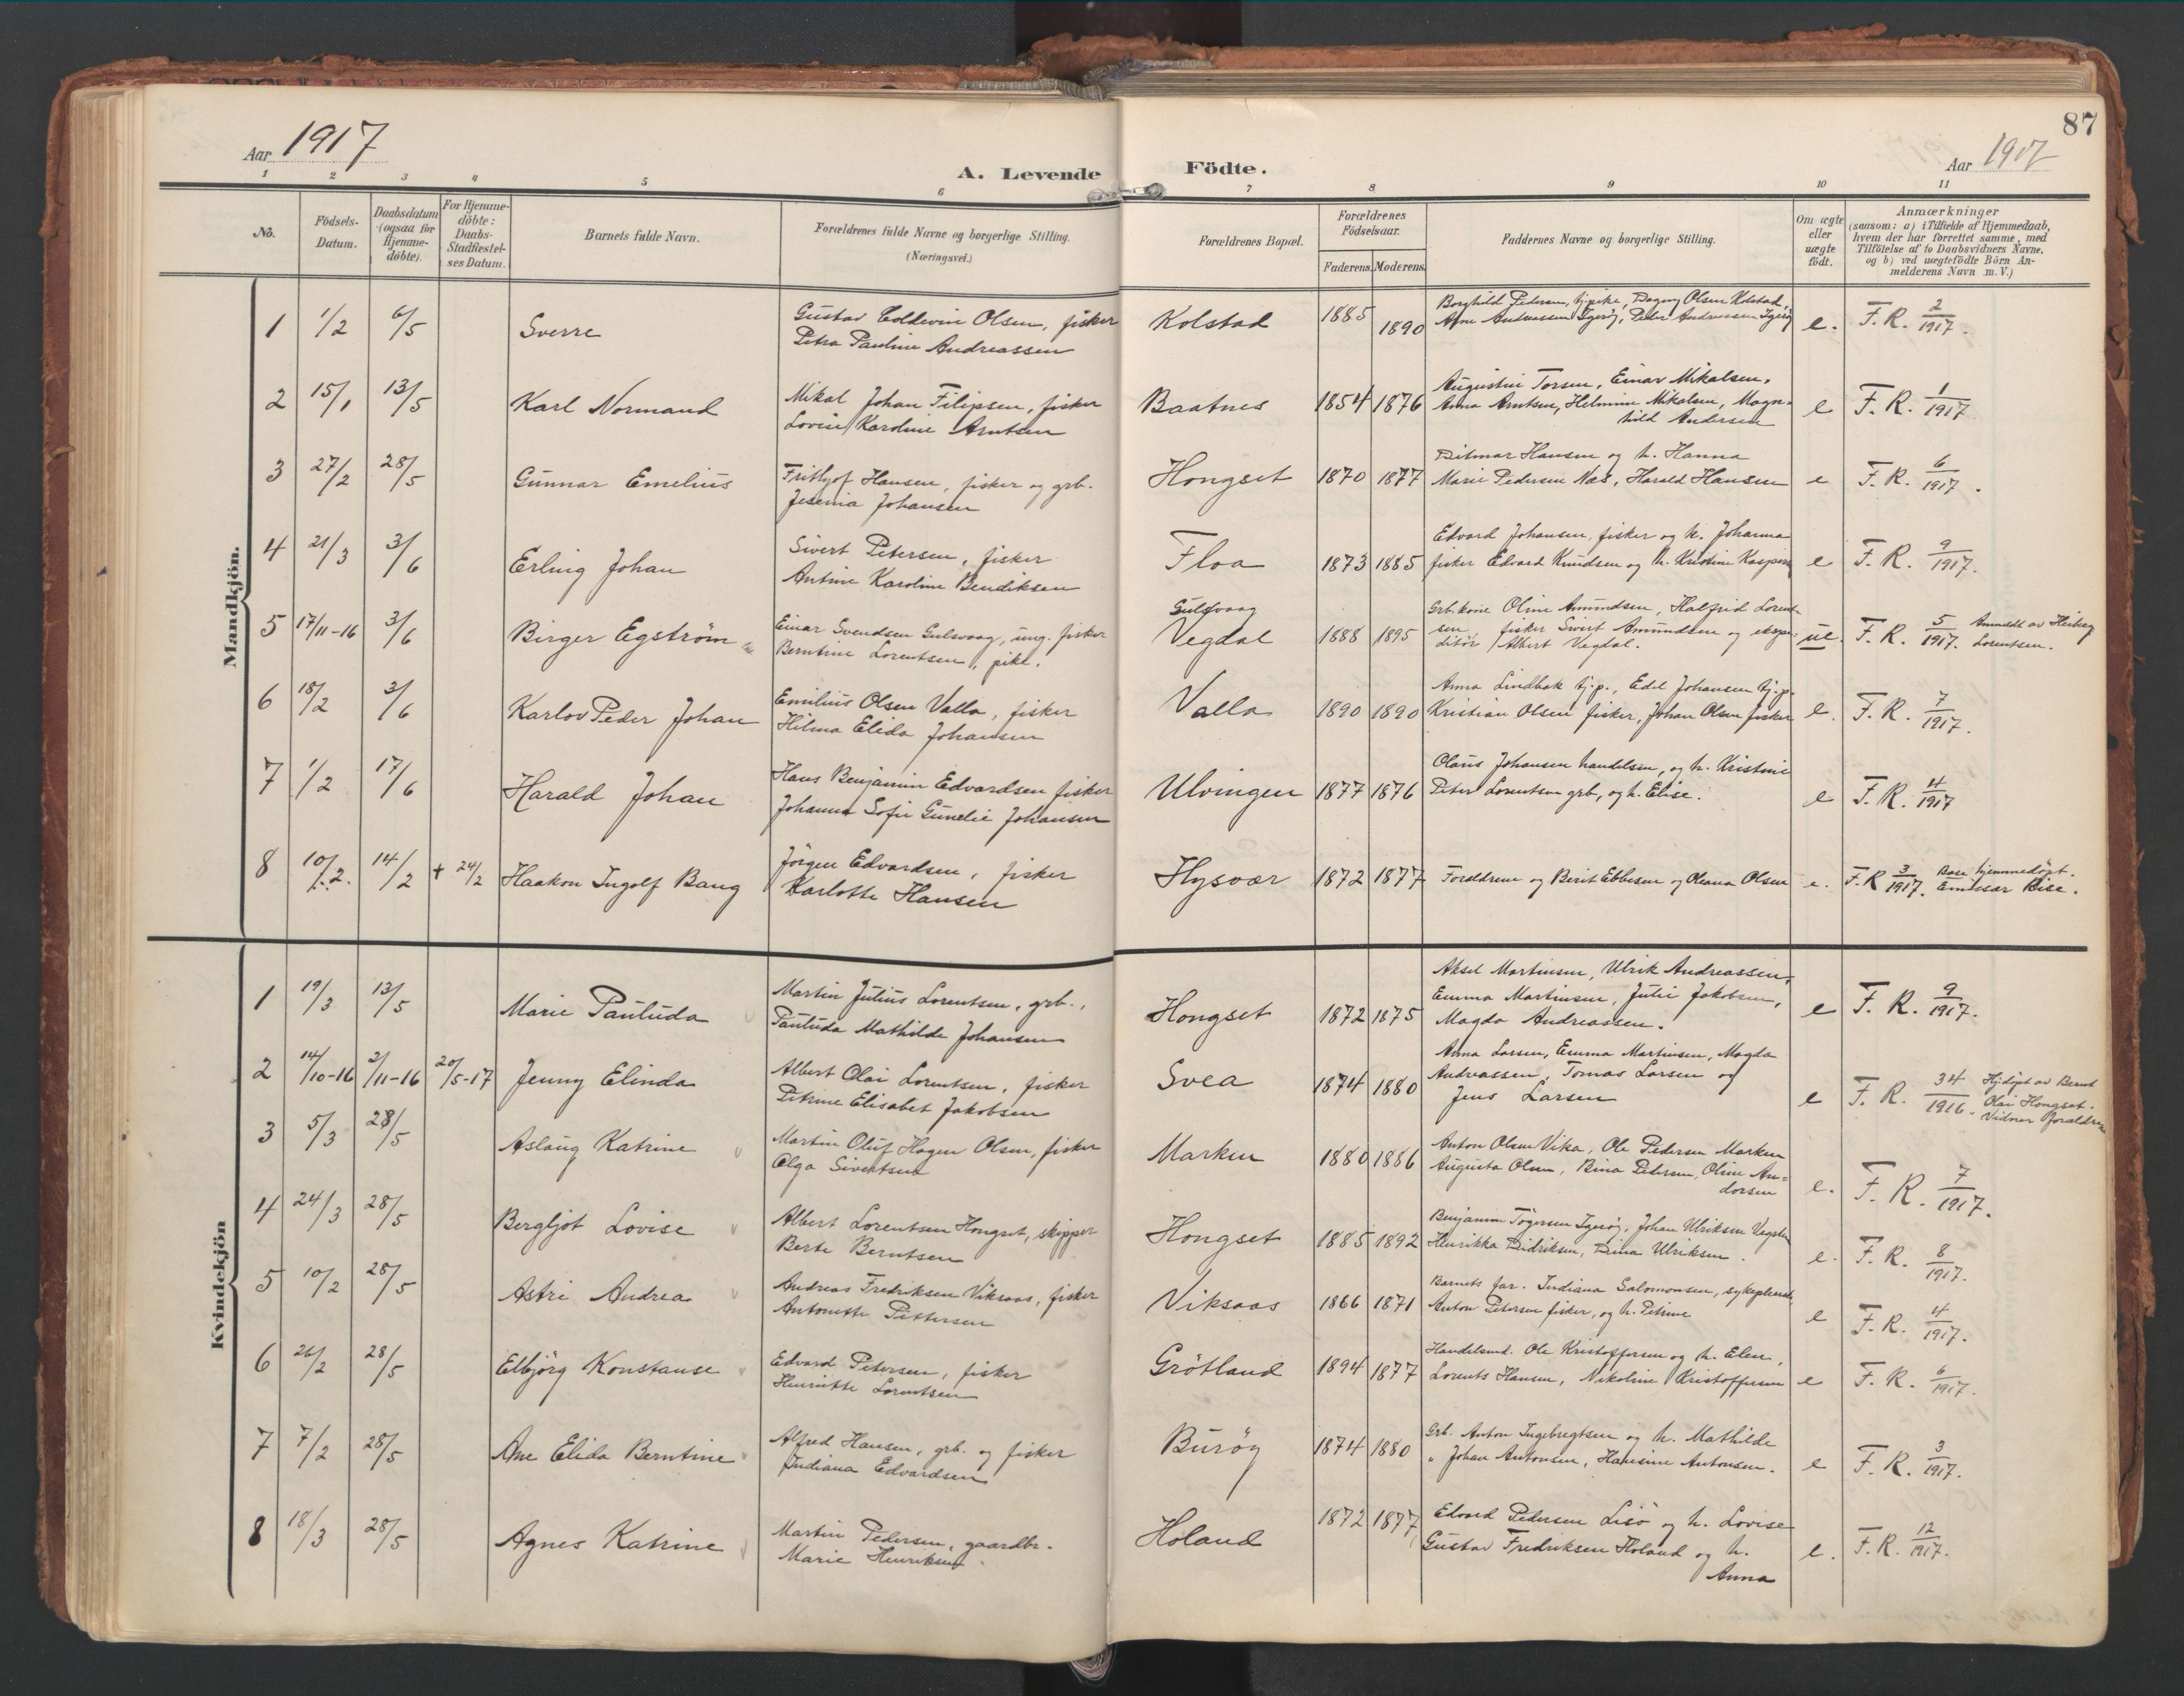 87
Aar 1917
A. Levende Födte.
Aar 1917
1 2 3 4 5 6 7 8 9 10 11
No.
Födsels-
Datum.
Daabsdatum
(ogsaa for
Hjemme-
döbte).
For Hjemme-
döbte:
Daabs-
Stadfæstel-
ses Datum.
Barnets fulde Navn.
Forældrenes fulde Navne og borgerlige Stilling.
(Næringsvei.)
Forældrenes Bopæl.
Forældrenes
Födselsaar.
Faderens. Moderens.
Faddernes Navne og borgerlige Stilling.
Om ægte
eller
uægte
födt.
Anmærkninger
(saasom: a) i Tilfælde af Hjemmedaab,
hvem der har forrettet samme, med
Tilföielse af to Daabsvidners Navne.
og b) ved uægtefödte Börn An-
melderens Navn m.V.)
Mandkjön.
1 1/2 6/5 Sverre
Gustav Coldevin Olsen, fisker
Petra Pauline Andreassen
Kolstad 1885 1890
Borghild Pedersen, tj.pike, Dagny Olsen Kolstad,
Arne Andreassen Igerøy, Peder Andreassen Igerøy
e. F. R. 2/1917.
2 15/1 13/5 Karl Normand
Mikal Johan Filipsen, fisker
Lovise Karoline Arntsen
Baatnes 1854 1876
Augustin Torsen, Einar Mikalsen,
Anna Arntsen, Helmine Mikalsen, Magn-
hild Andersen
e F. R. 1/1917
3 27/2 28/5 Gunnar Emelius
Frithjof Hansen, fisker og grb.
Jesenia Johansen
Hongset 1870 1877
Ditmar Hansen og h. Hanna
Marie Pedersen Næs, Harald Hansen
e F. R. 6/1917.
4 21/3 3/6 Erling Johan
Sivert Petersen, fisker
Antine Karoline Bendiksen
Floa 1873 1885
Edvard Johansen, fisker og h. Johanna
fisker Edvard Knudsen og h. Kristine Kaspers
e F. R. 9/1917.
5 17/11-16 3/6 Birger Egström
Einar Svendsen Gulsvaag, ung. fisker
Berntine Lorentsen, pike.
Gulsvaag
Vegdal 1888 1895
Grb.kone Oline Amundsen, Halfrid Lorent-
sen, fisker Sivert Amundsen og ekspe-
ditör Albert Vegdal.
ue. F. R. 5/1917. Anmeldt av Heiberg
Lorentsen.
6 18/2 3/6 Karlov Peder Johan
Emilius Olsen Valla, fisker
Hilma Elida Johansen
Valla 1890 1890
Anna Lindbak tj.p., Edel Johansen tj.p.
Kristian Olsen fisker, Johan Olsen fisker
e. F. R. 7/1917.
7 1/2 17/6 Harald Johan
Hans Benjamin Edvardsen fisker
Johanna Sofie Gunelie Johansen
Ulvingen 1877 1876
Olaus Johansen handelsm, og h. Kristine
Peter Lorentsen grb, og h. Elise.
e F. R. 4/1917
8 10/2. 14/2 + 24/2 Haakon Ingolf Bang
Jörgen Edvardsen, fisker
Karlotte Hansen
Hysvær 1872 1877
Forældrene og Berit Ebbesen og Oleana Olsen
e. F. R 3/1917. Base hjemmedøpt.
Emissær Bise.
Kvindekjön
1 19/3 13/5 Marie Pauluda
Martin Julius Lorentsen, grb.,
Pauluda Mathilde Johansen
Hongset 1872 1875
Aksel Martinsen, Ulrik Andreassen,
Emma Martinsen, Julie Jakobsen,
Magda Andreassen.
e F. R. 9/1917.
2 14/10-16 2/11-16 20/5-17 Jenny Elinda
Albert Olai Lorentsen, fisker
Petrine Elisabet Jakobsen
Svea 1874 1880
Anna Larsen, Emma Martinsen, Magda
Andreassen, Tomas Larsen og
Jens Larsen
e F. R. 34/1916. Hjdøpt av Bernt
Olai Hongset.
Vidner forældrene
3 5/3 28/5 Aslaug Katrine
Martin Oluf Hagen Olsen, fisker
Olga Sivertsen
Marken 1880 1886
Anton Olsen Vika, Ole Pedersen Marken
Augusta Olsen, Bina Pedersen, Oline An-
dorsen
e. F. R. 7/1917.
4 24/3 28/5 Bergljot Lovise
Albert Lorentsen Hongset, skipper
Berte Berntsen
Hongset 1885 1892
Benjamin Tögersen Igerøy, Johan Ulriksen
Henrikka Didriksen, Dina Ulriksen.
e. F. R. 8/1917.
5 10/2 28/5 Astri Andrea
Andreas Fredriksen Viksaas, fisker
Antonette Pettersen
Viksaas 1866 1871
Barnets far. Indiana Salomonsen, sykepleiersk.
Anton Petersen fisker, og h. Petrine
e F. R. 4/1917.
6 26/2 28/5 Elbjörg Konstanse
Edvard Petersen, fisker
Henriette Lorentsen
Grötland 1894 1877
Handelsmd. Ole Kristoffersen og h. Elen,
Lorents Hansen, Nikoline Kristoffersen
e F. R. 6/1917.
7 7/2 28/5 Ane Elida Berntine
Alfred Hansen, grb. og fisker
Indiana Edvardsen
Burøy 1874 1880
Grb. Anton Ingebregtsen og h. Mathilde
" Johan Antonsen, Hansine Antonsen.
e F. R. 3/1917.
8 18/3 28/5 Agnes Katrine
Martin Pedersen, gaardbr.
Marie Henriksen
Holand 1872 1877
Edvard Pedersen Lisö og h. Lovise
Gustav Fredriksen Holand og h.
Anna
e. F. R. 12/1917.